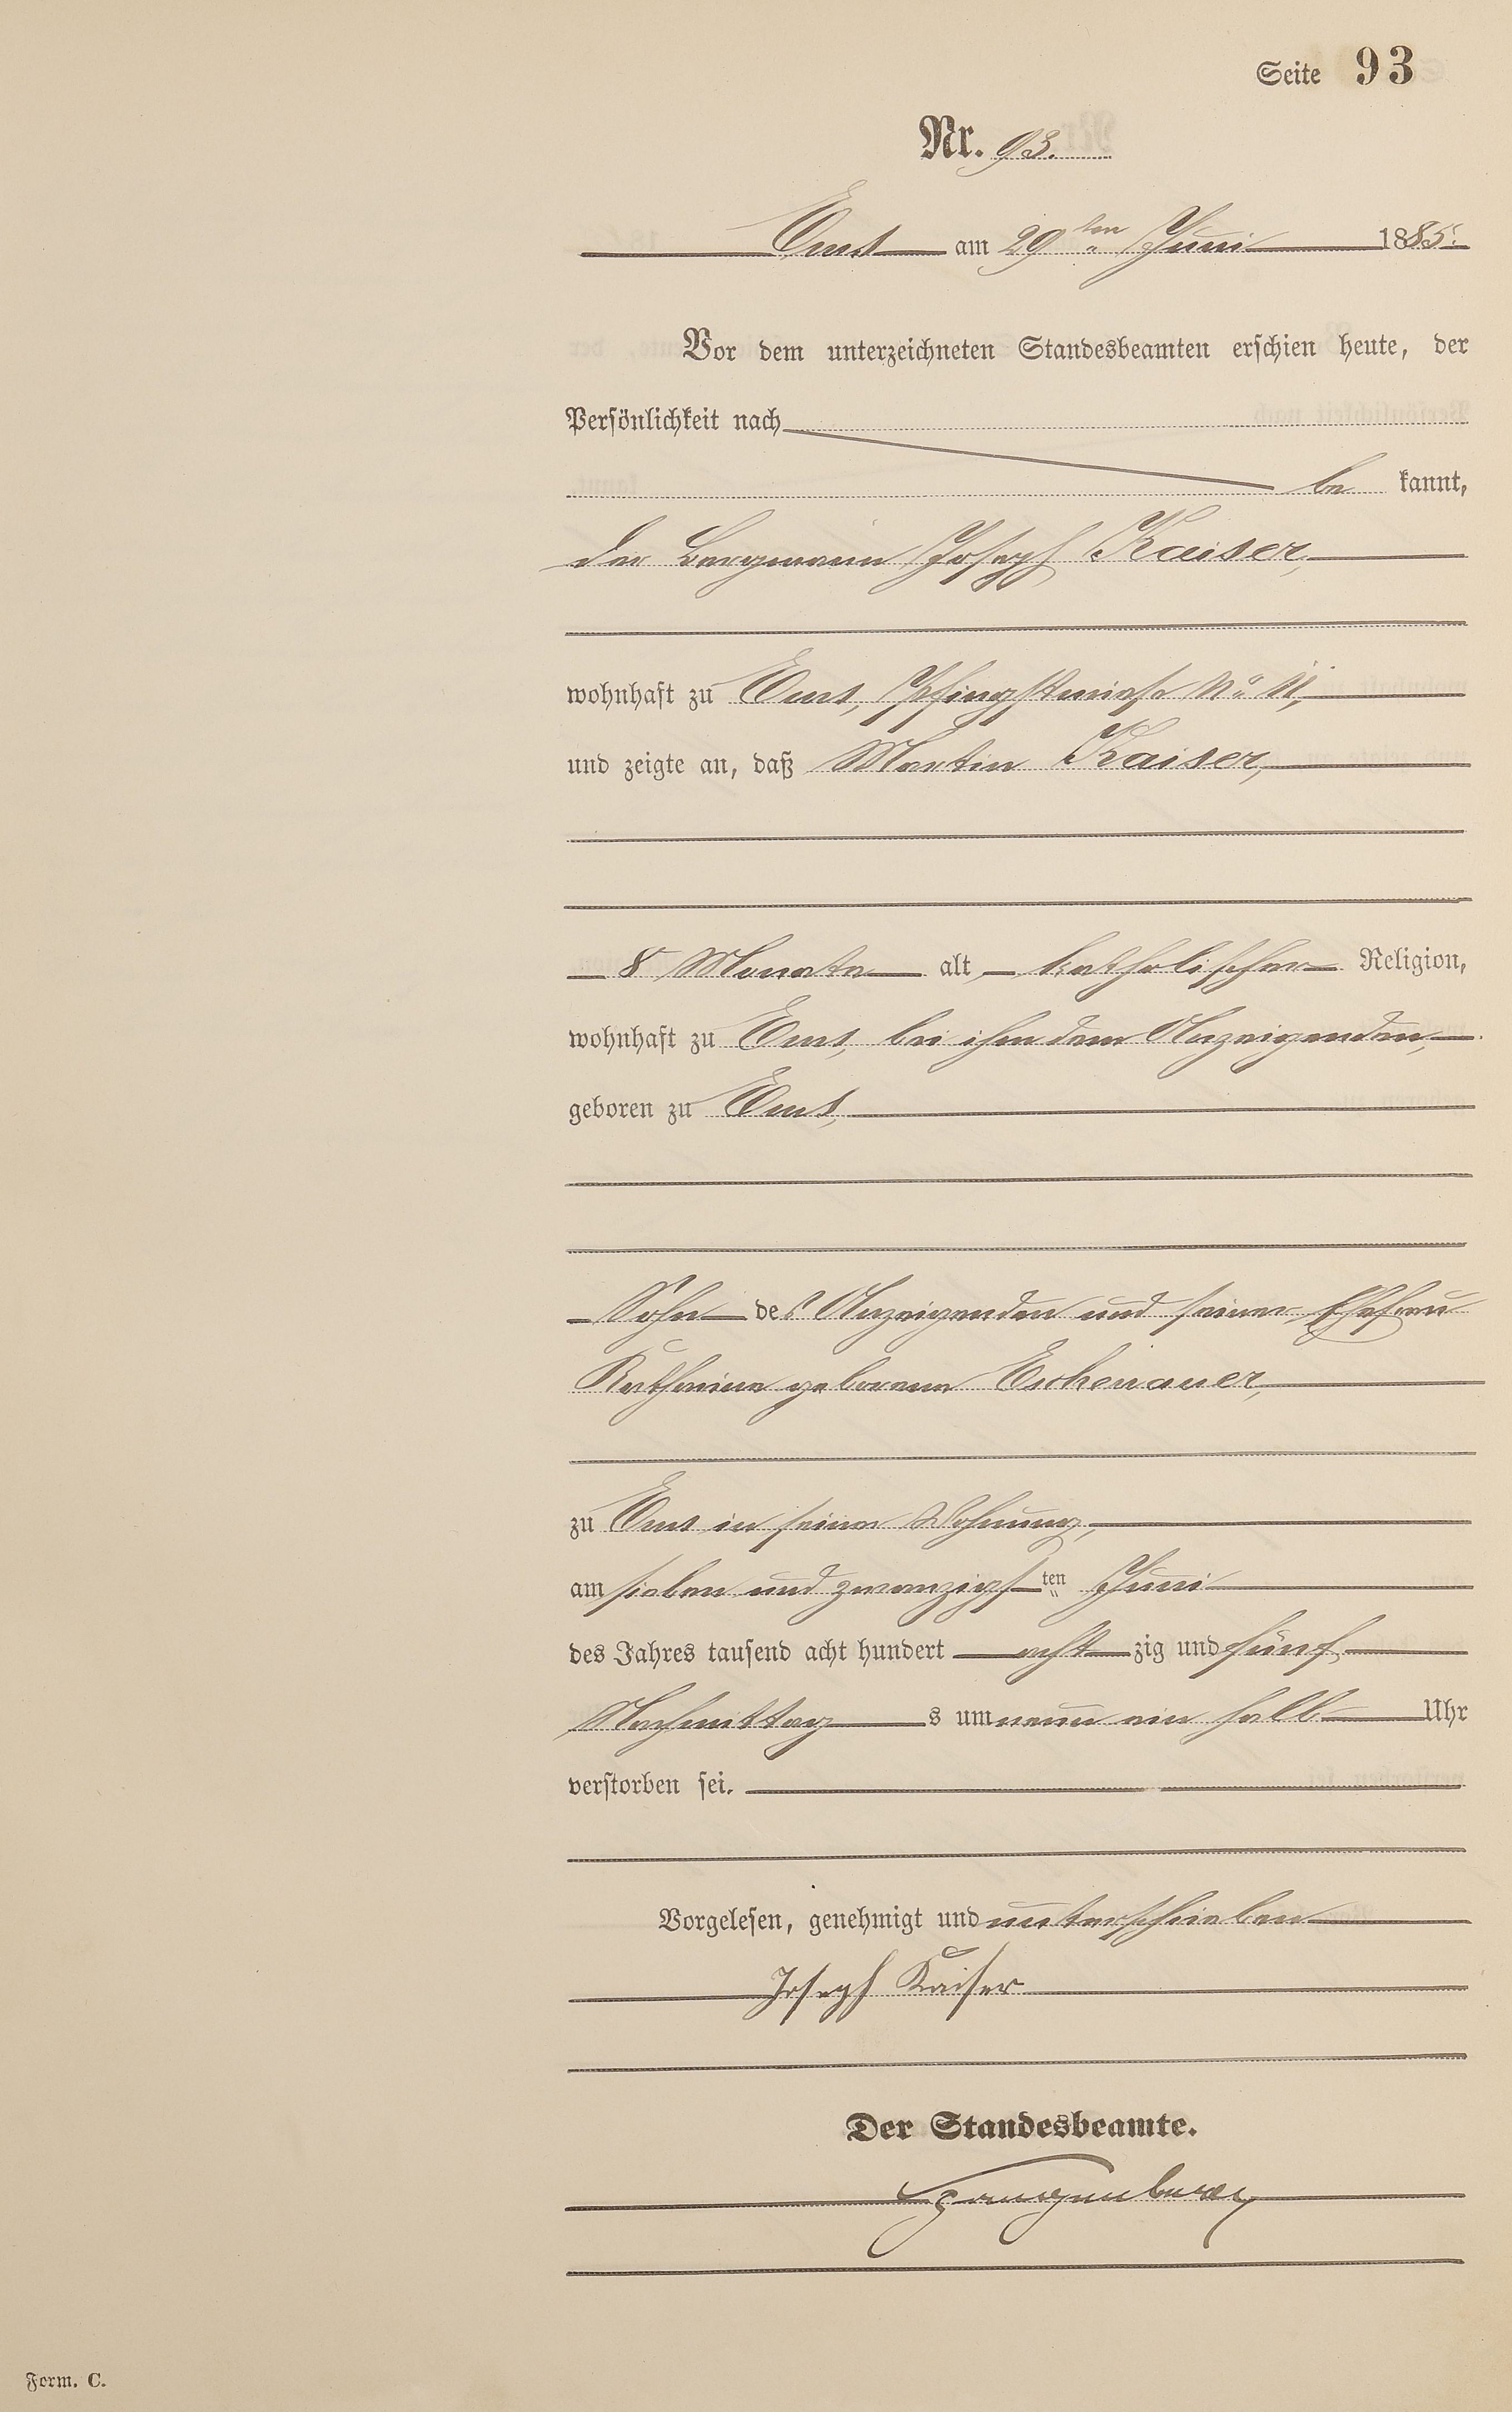 Seite 93
Nr. 93.
Ems am 29ten Juni 1885.
Vor dem unterzeichneten Standesbeamten erschien heute, der
Persönlichkeit nach
be kannt,
der Bergmann Joseph Kaiser,
wohnhaft zu Ems, Pfingstwiese No 11,
und zeigte an, daß Martin Kaiser,
8 Monate alt, katholischer Religion,
wohnhaft zu Ems, bei ihm dem Anzeigenden,
geboren zu Ems,
Sohn des Anzeigenden und seiner Ehefrau
Katharina geborene Eschenauer,
zu Ems in seiner Wohnung,
am sieben und zwanzigsten Juni
des Jahres tausend acht hundert acht zig und fünf
Nachmittags um neun ein halb Uhr
verstorben sei.
Vorgelesen, genehmigt und unterschrieben
Joseph Kaiser
Der Standesbeamte.
Form. C.